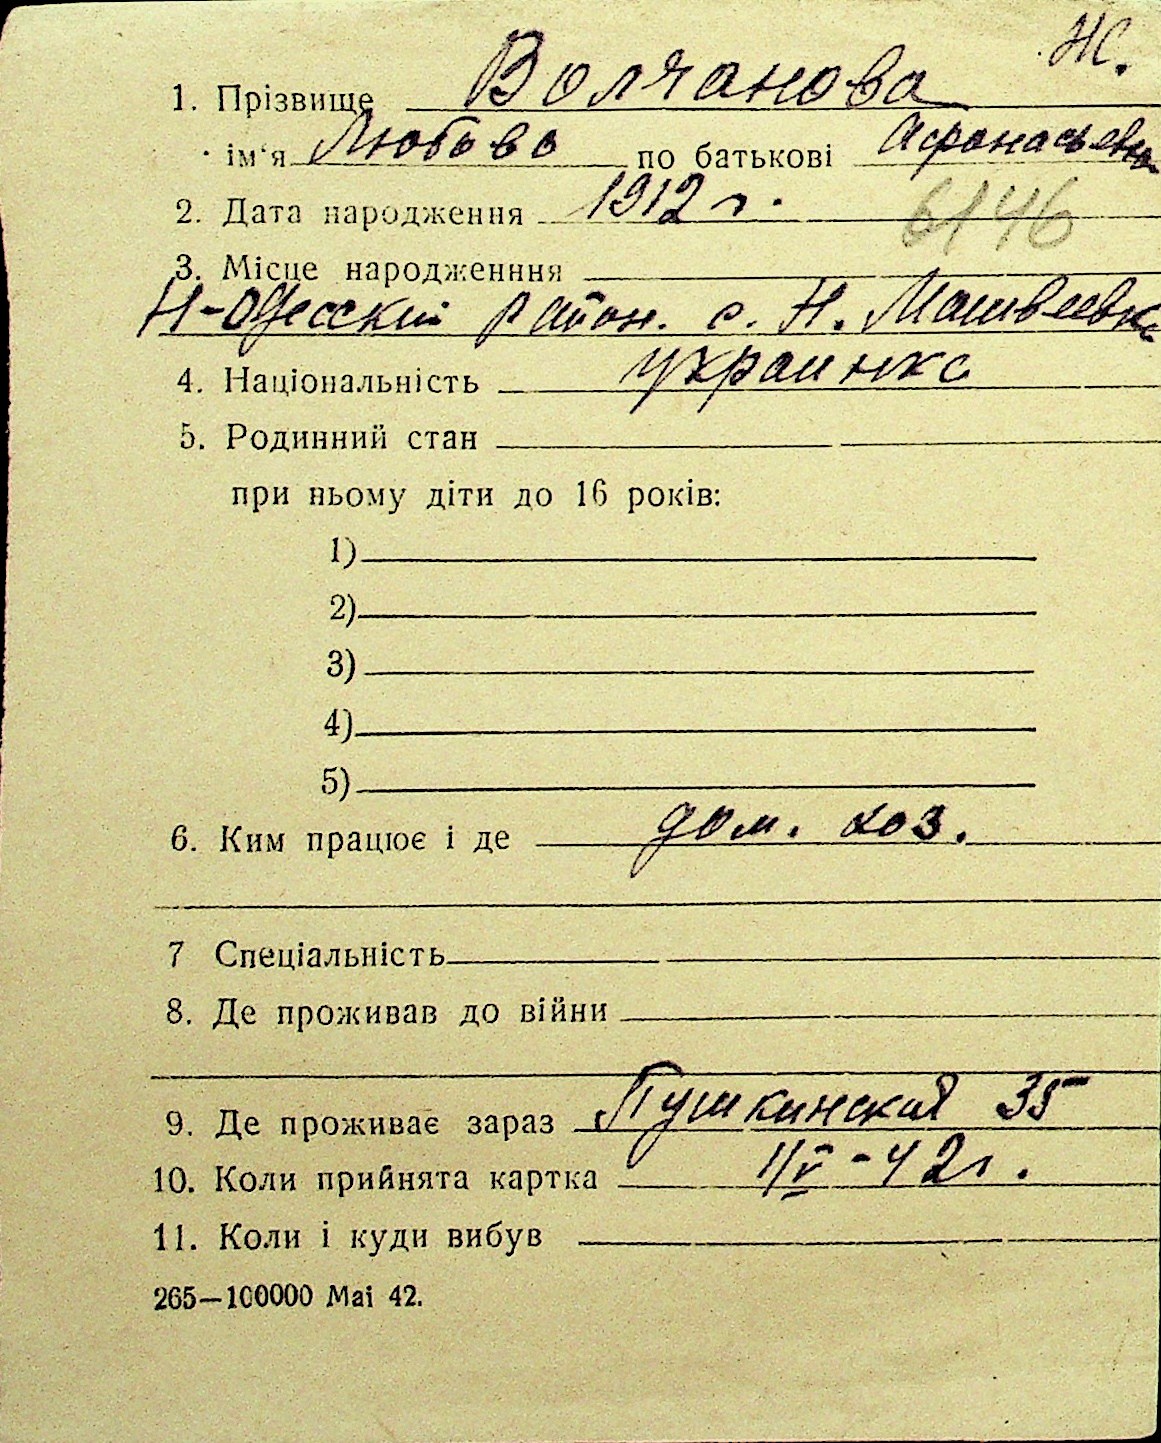 Ж.
1. Прізвище Волчанова
ім'я Любовь по батькові Афонасьевна
2. Дата народження 1912 г.
6146
3. Місце народженння
Н-Одесский район. с. Н. Матвеевка
4. Національність украинка
5. Родинний стан
при ньому діти до 16 років:
1)
2)
3)
4)
5)
6. Ким працює і де дом. хоз.
7 Спеціальність
8. Де проживав до війни
9. Де проживає зараз Пушкинская 35
10. Коли прийнята картка 1/V-42г.
11. Коли і куди вибув
265—100000 Mai 42.